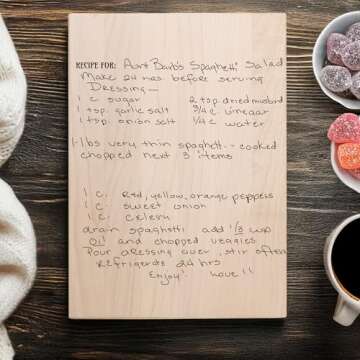 RECIPE FOR: Aunt Barb's Spaghetti Salad
Make 24 hrs before serving
Dressing —
1 c sugar 2 tsp. dried mustard
1 tsp. garlic salt 3/4 c vinegar
1 tsp. onion salt 1/4 c water
1-lbs very thin spaghetti - cooked
chopped next 3 items
1 c. red, yellow, orange peppers
1 c. sweet onion
1 c. celery
drain spaghetti add 1/3 cup
oil and chopped veggies
Pour dressing over, stir often
Refrigerate 24 hrs
Enjoy! Love!!